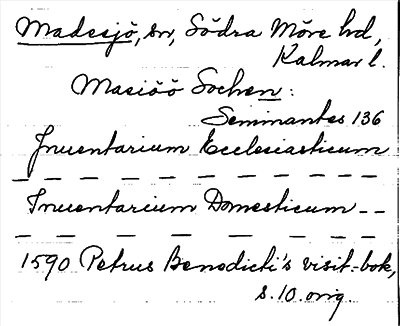 Madesjö, sn, Södra Möre hd,
Kalmar l.
Masiöö Sochen:
Seminantes 136
Inuentarium Ecclesiasticum
— — — — — — — — — — —
Inuentarium Domesticum --
— — — — — — — — — — —
1590 Petrus Benedicti's visit.-bok,
s. 10. orig.